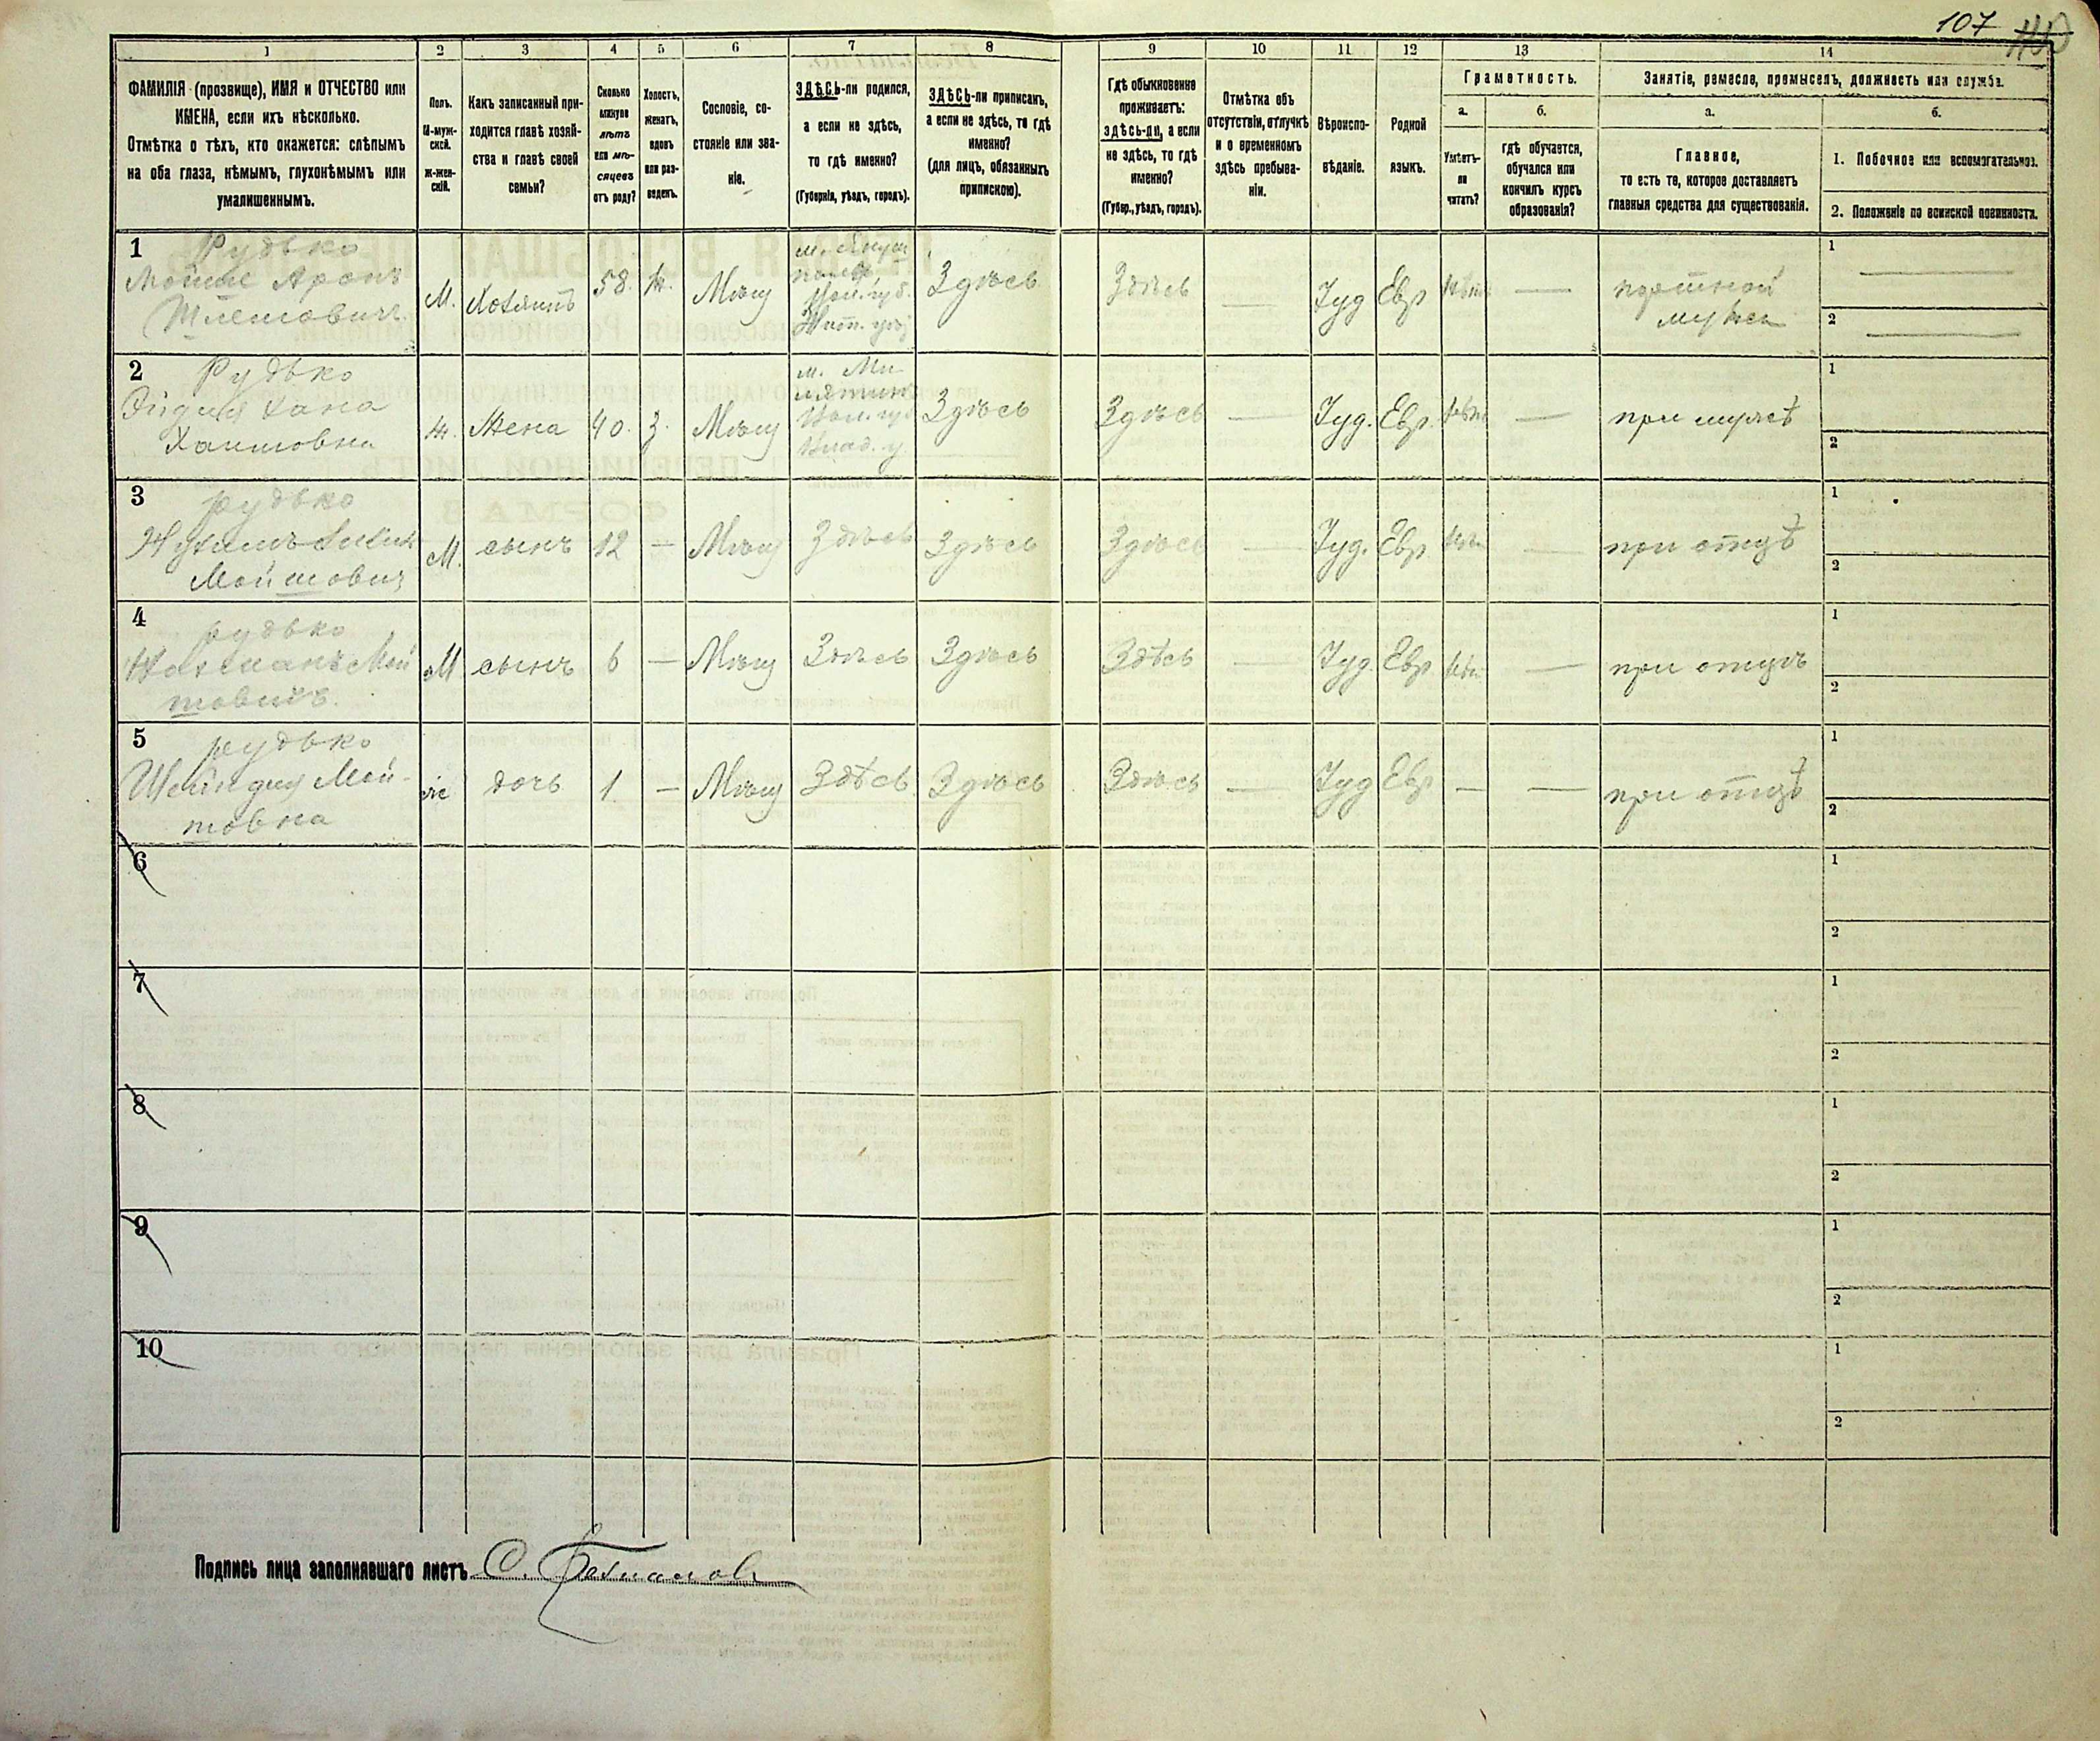 107
1 2 3 4 5 6 7 8 9 10 11 12 13 14
ФАМИЛІЯ (прозвище), ИМЯ и ОТЧЕСТВО или
ИМЕНА, если ихъ нѣсколько.
Отмѣтка о тѣхъ, кто окажется: слѣпымъ
на оба глаза, нѣмымъ, глухонѣмымъ или
умалишеннымъ.
Полъ.
М-муж-
ской.
ж-жен-
скій.
Какъ записанный при-
ходится главѣ хозяй-
ства и главѣ своей
семьи?
Сколько
минуло
лѣтъ
или мѣ-
сяцевъ
отъ роду?
Холостъ,
женатъ,
вдовъ
или раз-
веденъ.
Сословіе, со-
стояніе или зва-
ніе.
ЗДѢСЬ-ли родился,
а если не здѣсь,
то гдѣ именно?
(Губернія, уѣздъ, городъ).
ЗДѢСЬ-ли приписанъ,
а если не здѣсь, то гдѣ
именно?
(для лицъ, обязанныхъ
припискою).
Гдѣ обыкновенно
проживаетъ:
здѣсь-ли, а если
не здѣсь, то гдѣ
именно?
(Губер., уѣздъ, городъ).
Отмѣтка объ
отсутствіи, отлучкѣ
и о временномъ
здѣсь пребыва-
ніи.
Вѣроиспо-
вѣданіе.
Родной
языкъ.
Грамотность.
а.
Умѣетъ-
ли
читать?
б.
гдѣ обучается,
обучался или
кончилъ курсъ
образованія?
Занятіе, ремесло, промыселъ, должность или служба.
а.
Главное,
то есть то, которое доставляетъ
главныя средства для существованія.
б.
1. Побочное или вспомогательное.
2. Положеніе по воинской повинности.
1 Рудько
Мойше Аронъ
М. Хозяинъ 58. Ж. Мѣщ
Здѣсь Здѣсь — Іуд Евр — портной
1 —
2 —
2 Рудько
Хана
Хаимовна
ж. Жена 40. З. Мѣщ
Здѣсь Здѣсь — Іуд. Евр. — при мужѣ
1
2
3 рудько
Мойшовичъ
М. сынъ 12 — Мѣщ Здѣсь Здѣсь Здѣсь — Іуд. Евр. — при отцѣ
1
2
4 рудько
Мой
шовичъ.
М сынъ 6 — Мѣщ Здѣсь Здѣсь Здѣсь — Іуд. Евр — при отцѣ
1
2
5 рудько
Шейндля Мой-
шовна
ж дочь 1 — Мѣщ Здѣсь Здѣсь Здѣсь — Іуд Евр — — при отцѣ
1
2
6
1
2
7
1
2
8
1
2
9
1
2
10
1
2
Подпись лица заполнявшаго листъ С.